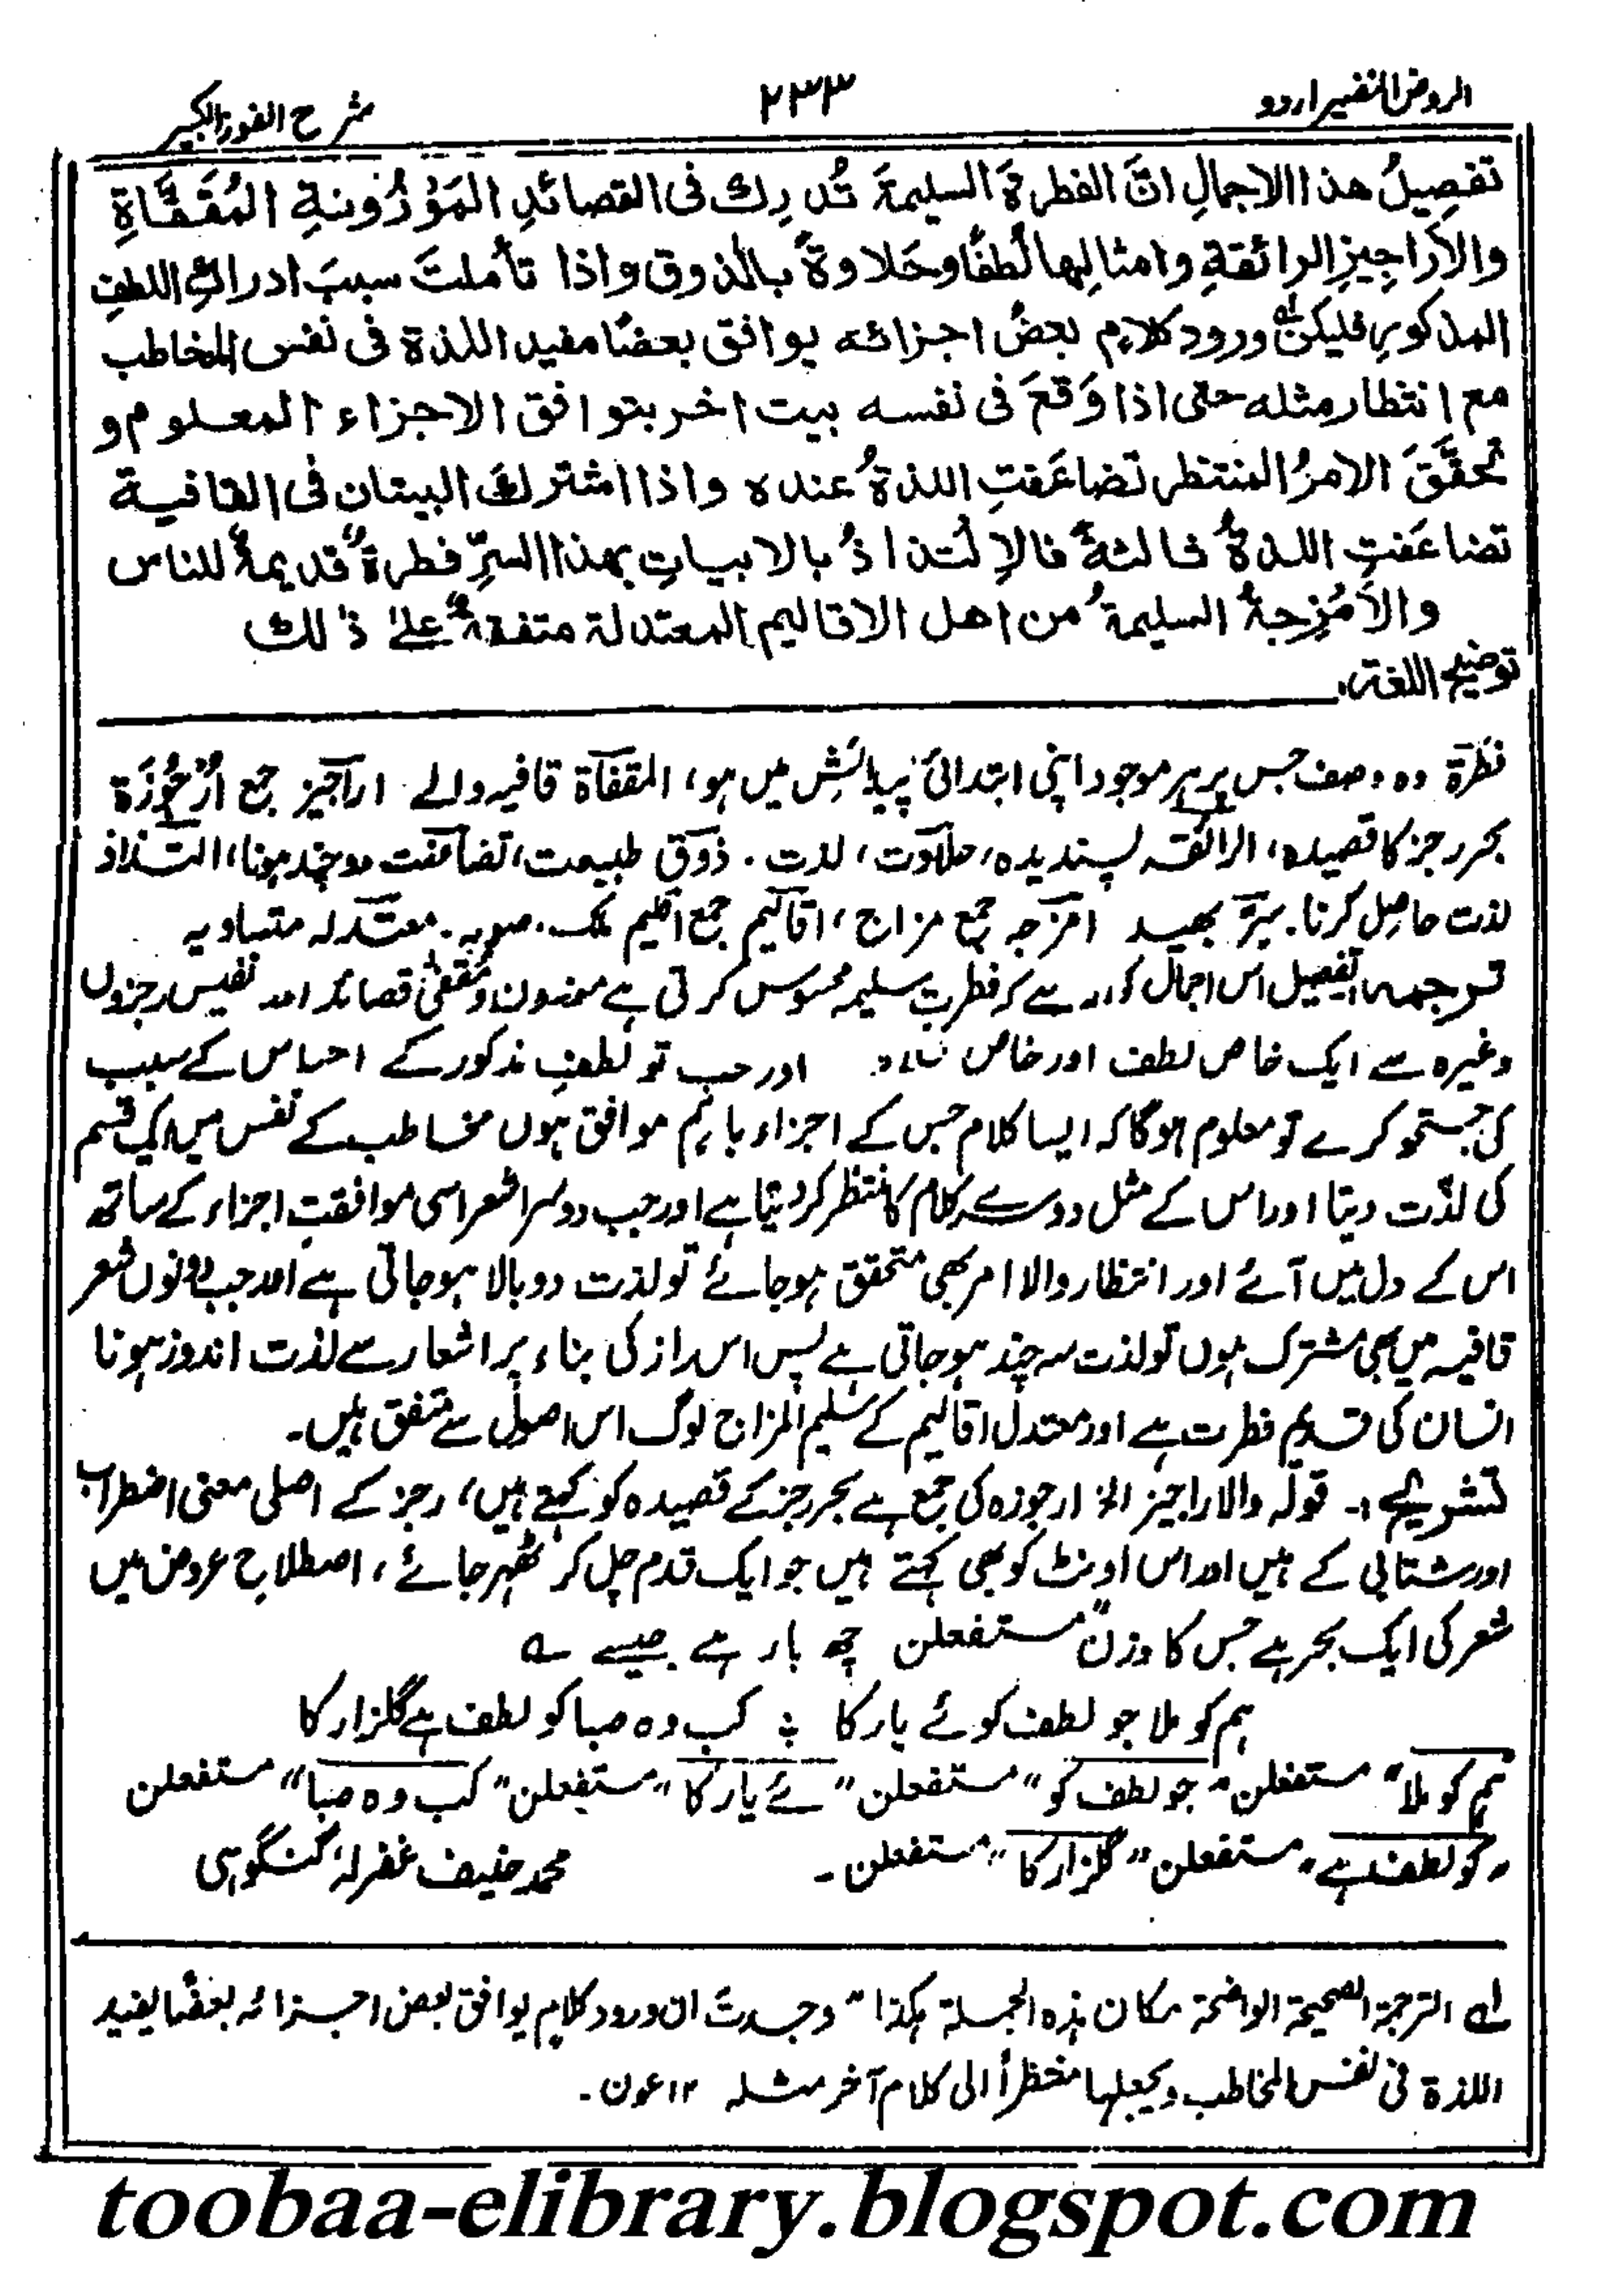 الروض النضير اردو
۲۳۳
شرح الفوز الكبير
تفصيلُ هذا الاجمالِ انَّ الفطرةَ السليمةَ تُدرِك فى القصائدِ المَوْزُونةِ المُقَفَّاةِ
والاَراجِيزِ الرائقةِ وامثالِها لُطفًا وحَلاوةً بالذوق واذا تأملتَ سببَ ادراكِ اللطفِ
المذكورِ فليكن له ورود كلامٍ بعضُ اجزائه يوافق بعضًا مفيد اللذة فى نفس المخاطب
مع انتظارِ مثله حتى اذا وَقعَ فى نفسه بيت اخر بتوافق الاجزاء المعلوم و
تحقَّقَ الامرُ المنتظر تضاعَفتِ اللذةُ عنده واذا اشترك البيتان فى القافية
تضاعَفتِ اللذةُ ثالثةً فالاِلتذاذُ بالابياتِ بهذا السرِّ فطرةٌ قديمةٌ للناس
والاَمْزِجةُ السليمةُ من اهل الاقاليم المعتدلة متفقةٌ على ذلك
توضيح اللغة
فطرۃ وہ وصف جس پر ہر موجود اپنی ابتدائی پیدائش میں ہو، المقفاۃ قافیہ والے اراجیز جمع اُرْجُوْزَة
بحر رجز کا قصیدہ، الرائقہ پسندیدہ، حلاوت، لذت۔ ذوق طبیعت، تضاعفت دوچند ہونا، التذاذ
لذت حاصل کرنا۔ سِرّ بھید امزجہ جمع مزاج، اقالیم جمع اقلیم ملک، صوبہ۔ معتدلہ متساویہ
ترجمہ تفصیل اس اجمال کی ہے کہ فطرت سلیمہ محسوس کرتی ہے موزون و مقفیٰ قصائد اور نفیس رجزوں
وغیرہ سے ایک خاص لطف اور خاص اور جب تو لطفِ مذکور کے احساس کے سبب
کی جستجو کرے تو معلوم ہوگا کہ ایسا کلام جس کے اجزاء باہم موافق ہوں مخاطب کے نفس میں ایک قسم
کی لذّت دیتا اور اس کے مثل دوسرے کلام کا منتظر کر دیتا ہے اور جب دوسرا شعر اسی موافقتِ اجزاء کے ساتھ
اس کے دل میں آئے اور انتظار والا امر بھی متحقق ہوجائے تو لذت دوبالا ہوجاتی ہے اور جب دونوں شعر
قافیہ میں بھی مشترک ہوں تو لذت سہ چند ہوجاتی ہے پس اس راز کی بناء پر اشعار سے لذت اندوز ہونا
انسان کی قدیم فطرت ہے اور معتدل اقالیم کے سلیم المزاج لوگ اس اصول سے متفق ہیں۔
تشریح :۔ قولہ والاراجیز الخ ارجوزہ کی جمع ہے بحر رجز کے قصیدہ کو کہتے ہیں، رجز کے اصلی معنی اضطراب
اور شتابی کے ہیں اور اس اونٹ کو بھی کہتے ہیں جو ایک قدم چل کر ٹھہر جائے، اصطلاح عروض میں
شعر کی ایک بحر ہے جس کا وزن "مستفعلن چھ بار ہے جیسے ؎
ہم کو ملا جو لطف کوئے یار کا ؞ کب وہ صبا کو لطف ہے گلزار کا
ہم کو ملا" مستفعلن" جو لطف کو" مستفعلن" ئے یار کا" مستفعلن" کب وہ صبا" مستفعلن
"کو لطف ہے" مستفعلن" گلزار کا" مستفعلن۔
محمد حنیف غفرلہٗ گنگوہی
لہ الترجمۃ الصحیحۃ الواضحۃ مکان ہذہ الجملۃ ہکذا" وجدت ان ورود کلام یوافق بعض اجزائہ بعضًا یفید
اللذۃ فی نفس المخاطب ویجعلہا منتظرًا الی کلام آخر مثلہ ۱۲ عون۔
toobaa-elibrary.blogspot.com